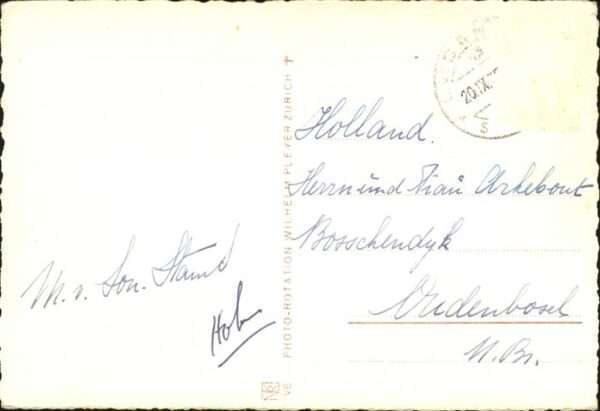 M. v.
Hob
VE PHOTO-ROTATION WILHELM PLEYER ZÜRICH
20.IX.
S
Holland.
Herrn und Frau Arkebout
Bosschendyk
Oudenbosch
N. Br.